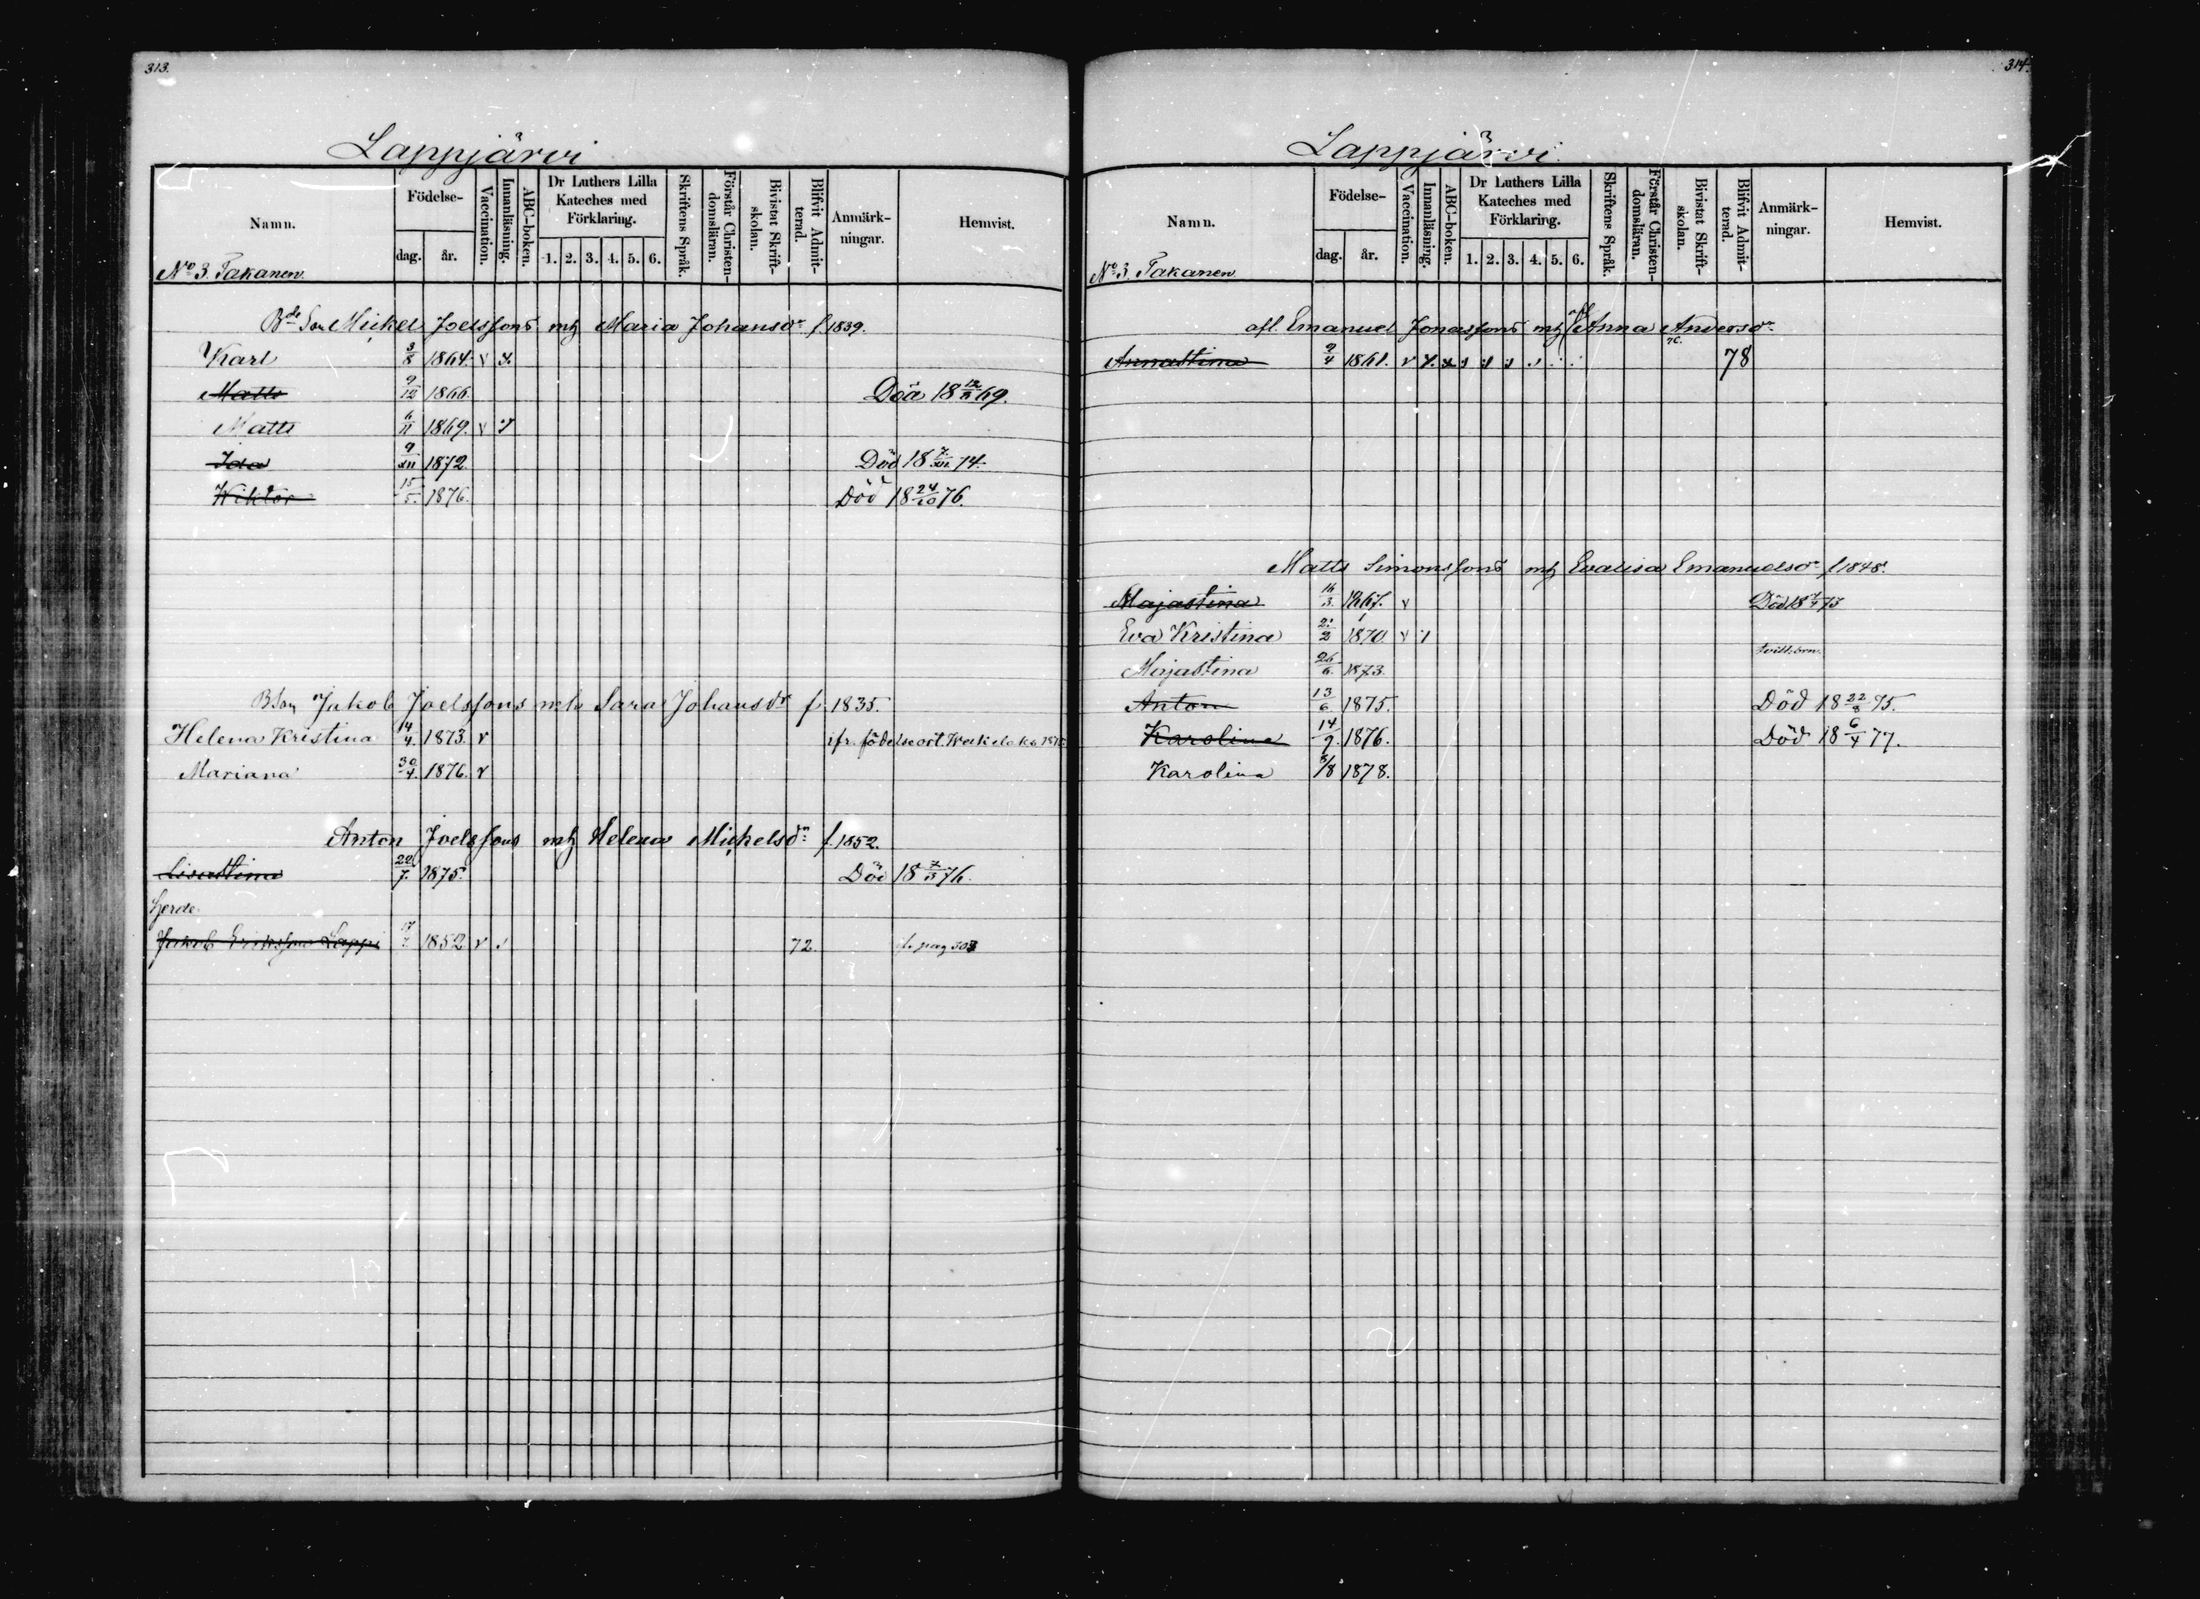 313.
Lappjärvi
Namn.
Födelse-
dag. år.
Vaccination.
Innanläsning.
ABC-boken.
Dr Luthers Lilla Kateches med Förklaring.
1. 2. 3. 4. 5. 6.
Skriftens Språk.
Förstår Christen-domsläran.
Bivistat Skrift-skolan.
Blifvit Admit-terad.
Anmärk-ningar.
Hemvist.
No 3. Takanen.
Bde Son Mickel Joelssons mh Maria Johansdr f. 1839.
Karl 3/8 1864. v x
Matts 9/12 1866. Död 18 69.
Matts 6/11 1869. v
Ida 9/XII 1872. Död 18 7/XII 74.
Wiktor 15/5. 1876. Död 18 24/10 76.
BSon Jakob Joelssons mh Sara Johansdr f. 1835.
Helena Kristina 14/4. 1873. v
Mariana 30/4. 1876. v
Anton Joelssons mh Helena Michelsdr f. 1852.
Lisastina 22/7. 1875. Död 18 76.
Herde
Jakob Eriksson Lappi 1852 v 72. pag 303
314.
Lappjärvi.
Namn.
Födelse-
dag. år.
Vaccination.
Innanläsning.
ABC-boken.
Dr Luthers Lilla Kateches med Förklaring.
1. 2. 3. 4. 5. 6.
Skriftens Språk.
Förstår Christen-domsläran.
Bivistat Skrift-skolan.
Blifvit Admit-terad.
Anmärk-ningar.
Hemvist.
No 3. Takanen
afl. Emanuel Jonassons mh afl Anna Andersdr
76.
Annastina 9/4 1861. v 78
Matts Simonssons mh Evalisa Emanuelsdr f 1848.
Majastina 1867. v Död 18 75
Eva Kristina 1870. v
Majastina 26/6. 1873.
Anton 13/6 1875. Död 18 22/8 75.
Karolina 14/9. 1876. Död 18 6/4 77.
Karolina 3/8 1878.